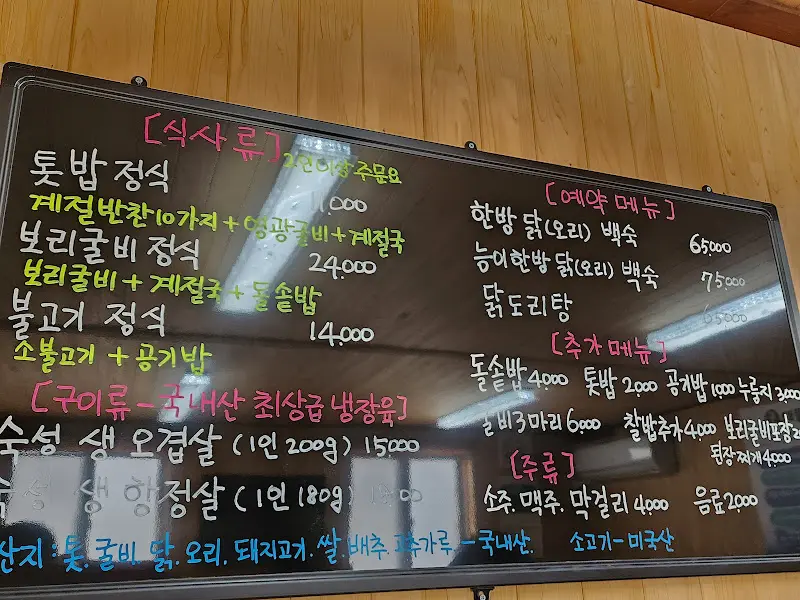 [식사류] 2인이상 주문요
톳밥 정식 11,000
계절반찬10가지+영광굴비+계절국
보리굴비 정식 24,000
보리굴비+계절국+돌솥밥
불고기 정식 14,000
소불고기+공기밥
[구이류-국내산 최상급 냉장육]
숙성 생 오겹살 (1인 200g) 15000
숙성 생 항정살 (1인 180g)
산지: 톳. 굴비. 닭. 오리. 돼지고기. 쌀. 배추. 고추가루. -국내산. 소고기-미국산
[예약메뉴]
한방 닭(오리) 백숙 65,000
능이한방 닭(오리) 백숙 75,000
닭도리탕 65,000
[추가메뉴]
돌솥밥 4,000 톳밥 2,000 공기밥 1,000 누룽지 3,000
굴비3마리 6,000 찰밥추가 4,000 보리굴비포장
된장찌개 4,000
[주류]
소주. 맥주. 막걸리 4,000 음료 2,000